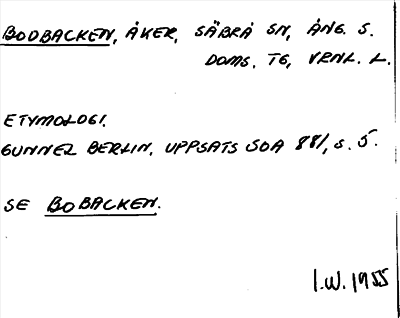 BODBACKEN, ÅKER, SÄBRÅ SN, ÅNG. S.
DOMS. TG, VRNL. L.
ETYMOLOGI.
GUNNEL BERLIN. UPPSATS SOA 881, S. 5.
SE BOBACKEN.
I.W. 1955